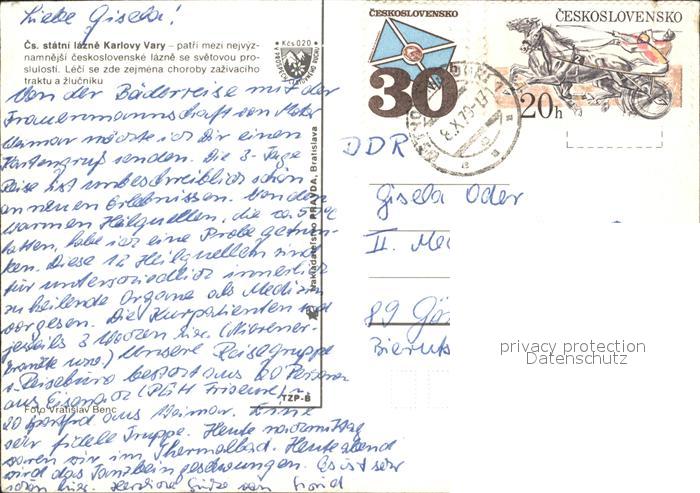 Liebe Gisela!
Čs. státní lázně Karlovy Vary – patří mezi nejvýz-
namnější československé lázně se světovou pro-
slulostí. Léčí se zde zejména choroby zažívacího
traktu a žlučníku
Von der Bäderreise mit der
Frauenmannschaft von
Weimar möchte ich Dir einen
Kartengruß senden. Die 3-Tage
Reise ist unbeschreiblich schön
an neuen Erlebnissen. Von den
warmen Heilquellen, die
hatten, habe ich eine Probe getrun-
ken. Diese 12 Heilquellen sind
für unterschiedlich innerlich
zu heilende Organe als Medizin
vorgesehen. Die Kurpatienten sind
jeweils 3 Wochen hier. (Nieren-
kranke usw.) Unsere Reisegruppe
v. Reisebüro besteht aus 20 Personen
aus Eisenach (PGH Friseure) u.
20 aus Weimar. Eine
sehr fidele Truppe. Heute nachmittag
waren wir im Thermalbad. Heute abend
wird das Tanzbein geschwungen. Es ist sehr
schön hier. Herzliche Grüße von
Foto Vratislav Benc
Kčs 0,20
Nakladatelstvo PRAVDA, Bratislava
TZP-B
ČESKOSLOVENSKO
30
ČESKOSLOVENSKO
20h
DDR
Gisela Oder
II.
89 Gö
privacy protection
Datenschutz